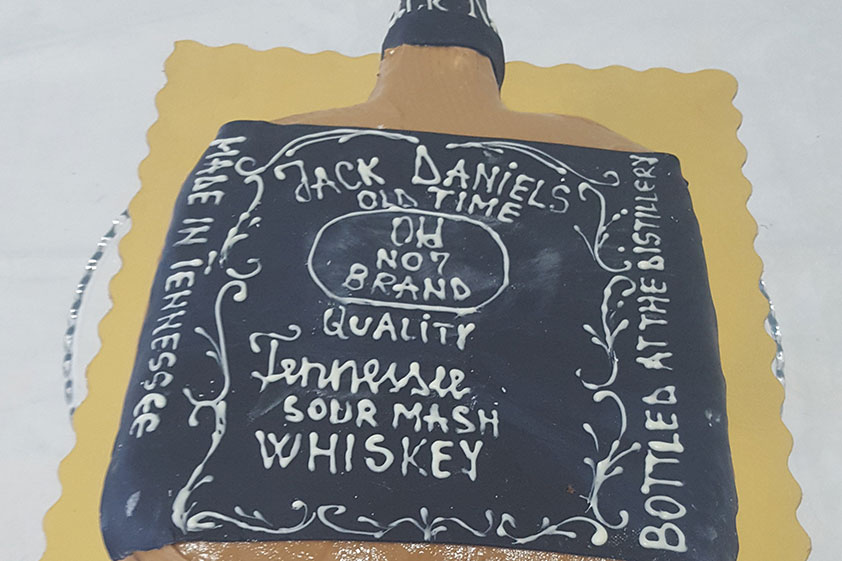 JACK DANIELS
OLD TIME
OH
NO7
BRAND
QUALITY
Tennessee
SOUR MASH
WHISKEY
MADE IN TENNESSEE
BOTTLED AT THE DISTILLERY